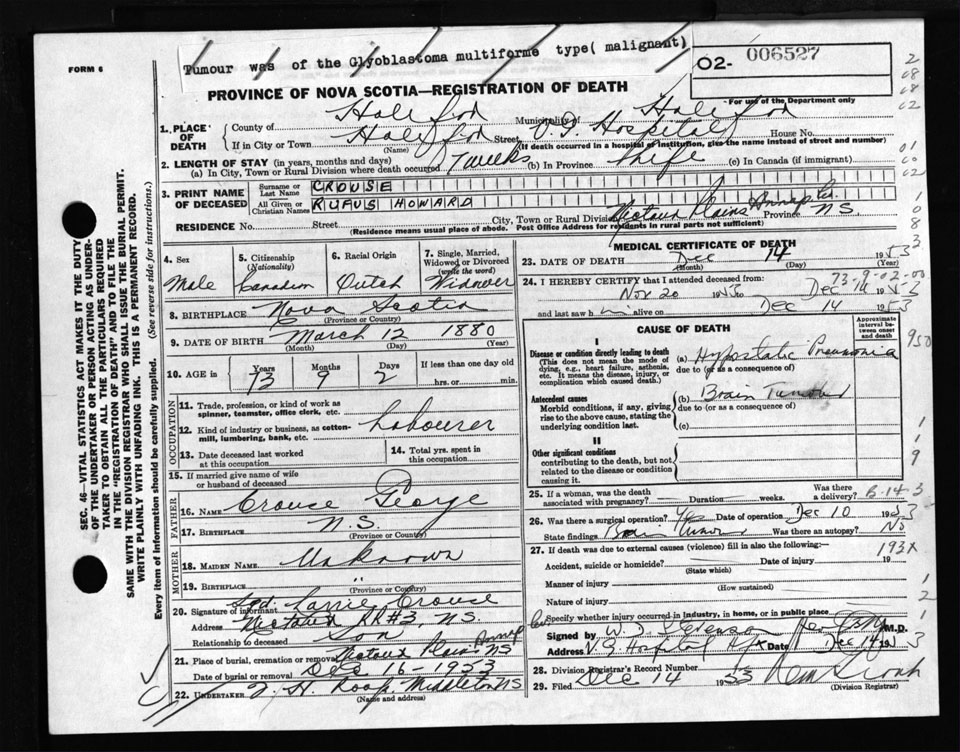 Tumour was of the Glyoblastoma multiforme type( malignant)
FORM 6
O2- 006527
For use of the Department only
PROVINCE OF NOVA SCOTIA—REGISTRATION OF DEATH
1. PLACE OF DEATH
County of Municipality of
If in City or Town Street V.G. Hospital House No.
(Name) (If death occurred in a hospital or institution, give the name instead of street and number)
2. LENGTH OF STAY (in years, months and days)
(a) In City, Town or Rural Division where death occurred 7 weeks (b) In Province Life (c) In Canada (if immigrant)
3. PRINT NAME OF DECEASED
Surname or Last Name CROUSE
All Given or Christian Names RUFUS HOWARD
RESIDENCE No. Street City, Town or Rural Division Nictaux Plains Annap. Co. Province N.S.
(Residence means usual place of abode. Post Office Address for residents in rural parts not sufficient)
4. Sex Male
5. Citizenship (Nationality) Canadian
6. Racial Origin Dutch
7. Single, Married, Widowed or Divorced (write the word) Widower
8. BIRTHPLACE Nova Scotia
(Province or Country)
9. DATE OF BIRTH March 12 1880
(Month) (Day) (Year)
10. AGE in Years 73 Months 9 Days 2 If less than one day old
hrs. or min.
OCCUPATION
11. Trade, profession, or kind of work as spinner, teamster, office clerk, etc.
12. Kind of industry or business, as cotton-mill, lumbering, bank, etc. Labourer
13. Date deceased last worked at this occupation
14. Total yrs. spent in this occupation
15. If married give name of wife or husband of deceased
FATHER
16. NAME Crouse George
17. BIRTHPLACE N.S.
(Province or Country)
MOTHER
18. MAIDEN NAME Unknown
19. BIRTHPLACE "
(Province or Country)
20. Signature of informant Sgd. Larrie Crouse
Address Nictaux RR#3, N.S.
Relationship to deceased Son
21. Place of burial, cremation or removal Nictaux Plains Annap NS
Date of burial or removal Dec 16-1953
22. Undertaker J. H. Roop, Middleton NS
(Name and address)
MEDICAL CERTIFICATE OF DEATH
23. DATE OF DEATH Dec 14 1953
(Month) (Day) (Year)
73-9-02-00
24. I HEREBY CERTIFY that I attended deceased from:
Nov 20 1953 to Dec 14 1953
and last saw h im alive on Dec 14 1953
CAUSE OF DEATH
Approximate interval between onset and death
I
Disease or condition directly leading to death
(This does not mean the mode of dying, e.g., heart failure, asthenia, etc. It means the disease, injury, or complication which caused death.)
(a) Hypostatic Pneumonia
due to (or as a consequence of)
Antecedent causes
Morbid conditions, if any, giving rise to the above cause, stating the underlying condition last.
(b) Brain Tumour
due to (or as a consequence of)
(c)
II
Other significant conditions
contributing to the death, but not related to the disease or condition causing it.
25. If a woman, was the death associated with pregnancy? Duration weeks. Was there a delivery? B-14-3
26. Was there a surgical operation? Yes Date of operation Dec 10 1953
State findings Brain Tumour Was there an autopsy? No
27. If death was due to external causes (violence) fill in also the following: 193X
Accident, suicide or homicide? Date of injury 19
(State which)
Manner of injury
(How sustained)
Nature of injury
Specify whether injury occurred in industry, in home, or in public place
Signed by W. D. Stevenson M.D.
Address V.G. Hospital Hfx Date Dec 14 1953
28. Division Registrar's Record Number
29. Filed Dec 14 1953
(Division Registrar)
SEC. 46—VITAL STATISTICS ACT MAKES IT THE DUTY
OF THE UNDERTAKER OR PERSON ACTING AS UNDER-
TAKER TO OBTAIN ALL THE PARTICULARS REQUIRED
IN THE "REGISTRATION OF DEATH" AND TO FILE THE
SAME WITH THE DIVISION REGISTRAR WHO SHALL ISSUE THE BURIAL PERMIT.
WRITE PLAINLY WITH UNFADING INK. THIS IS A PERMANENT RECORD.
Every item of information should be carefully supplied. (See reverse side for instructions.)